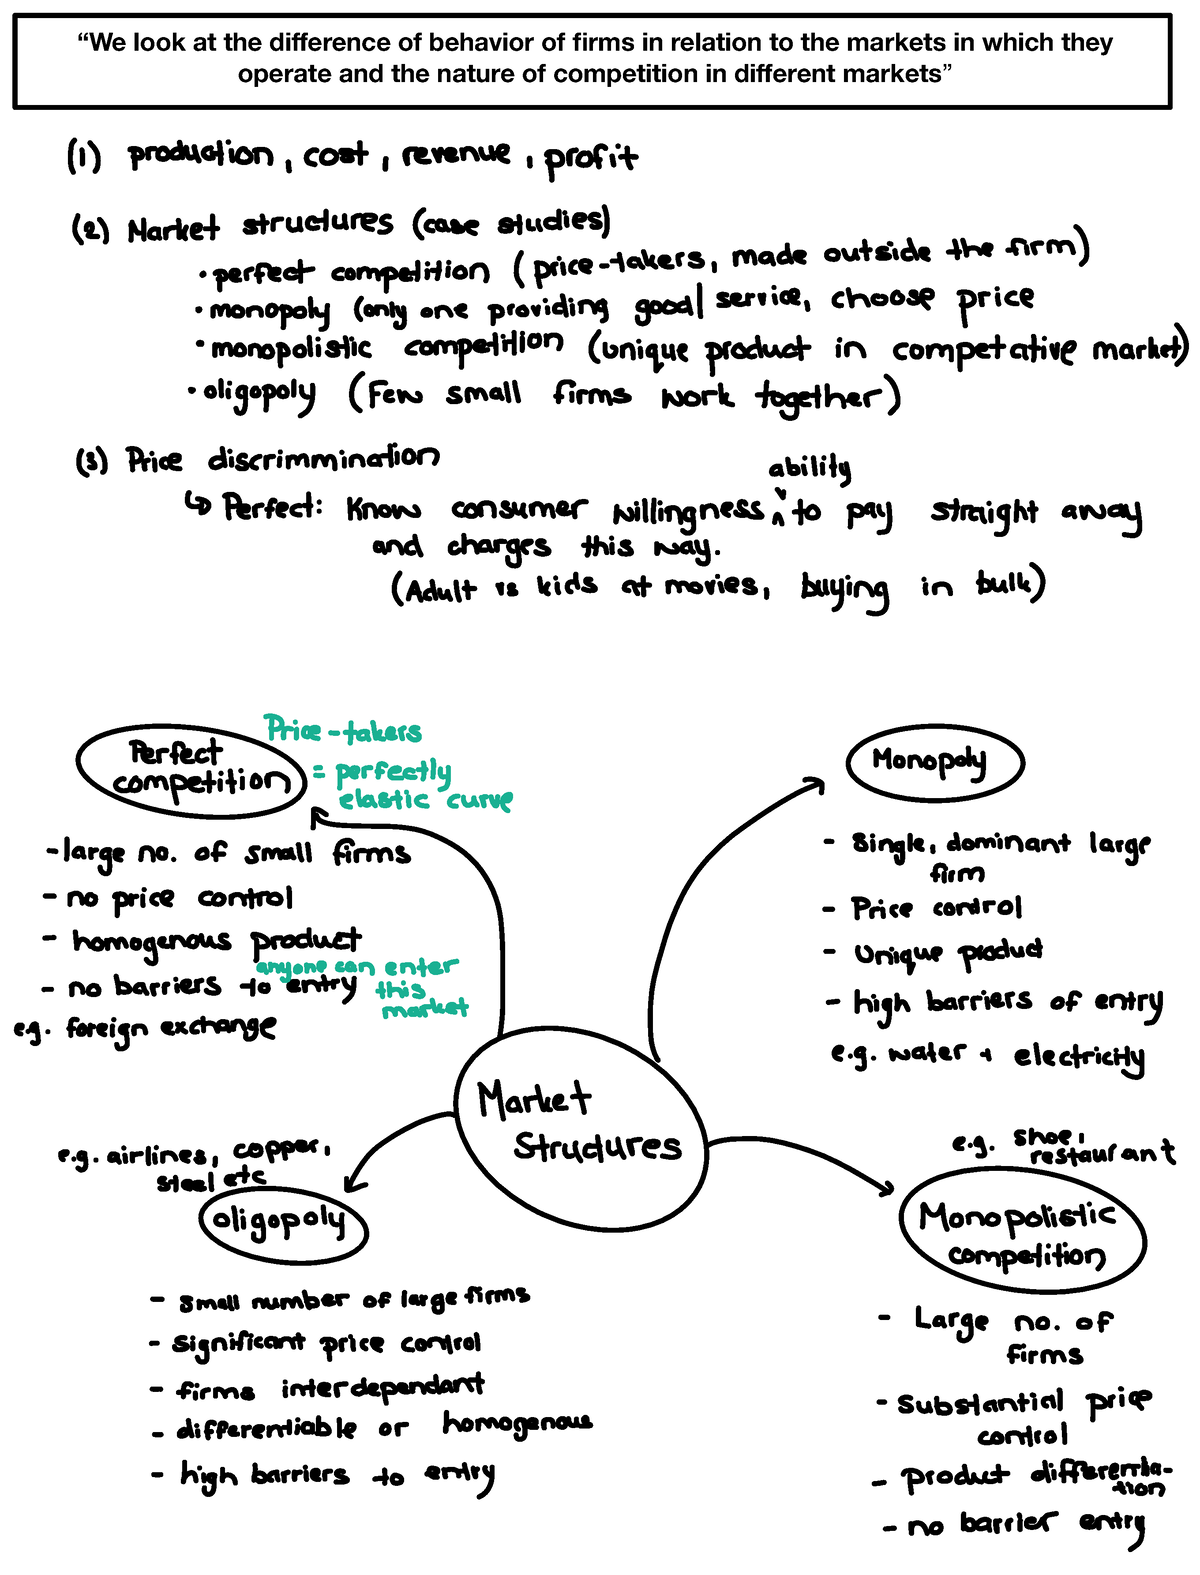 “We look at the difference of behavior of firms in relation to the markets in which they
operate and the nature of competition in different markets”
(1) production, cost, revenue, profit
(2) Market structures (case studies)
• perfect competition (price-takers, made outside the firm)
• monopoly (only one providing good/service, choose price
• monopolistic competition (unique product in competative market)
• oligopoly (Few small firms work together)
(3) Price discrimmination
ability
↳ Perfect: Know consumer willingness ^ to pay straight away
and charges this way.
(Adult vs kids at movies, buying in bulk)
Perfect
competition
Price-takers
= perfectly
elastic curve
- large no. of small firms
- no price control
- homogenous product
anyone can enter
- no barriers to entry
this
market
e.g. foreign exchange
Monopoly
- Single, dominant large
firm
- Price control
- Unique product
- high barriers of entry
e.g. water + electricity
Market
Structures
e.g. airlines, copper,
steel etc
oligopoly
- small number of large firms
- significant price control
- firms interdependant
- differentiable or homogenous
- high barriers to entry
e.g. shoe,
restaurant
Monopolistic
competition
- Large no. of
firms
- Substantial price
control
- product differentia-
tion
- no barrier entry